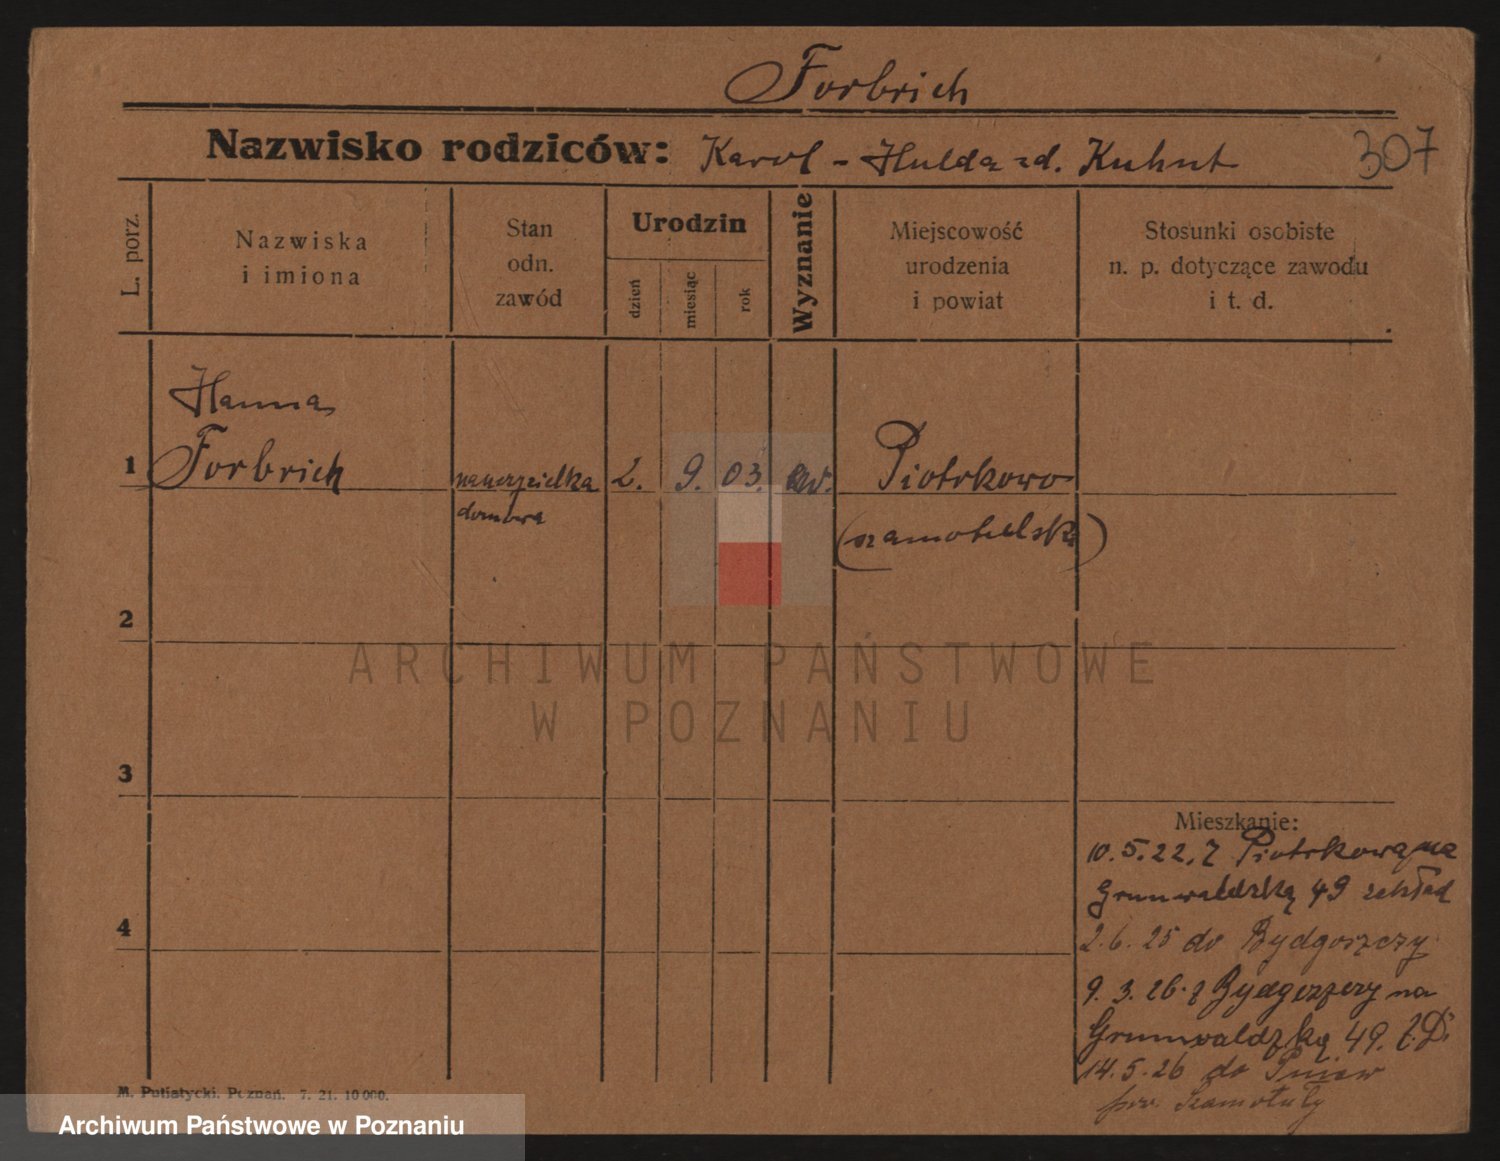 Forbrich
Nazwisko rodziców: Karol - Hulda zd. Kuhnt 307
L. porz.
Nazwiska
i imiona
Stan
odn.
zawód
Urodzin
dzień
miesiąc
rok
Wyznanie
Miejscowość
urodzenia
i powiat
Stosunki osobiste
n. p. dotyczące zawodu
i t. d.
Hanna
1 Forbrich nauczycielka 2. 9. 03. ew. Piotrkowo
domowa (szamotulski)
2
ARCHIWUM PAŃSTWOWE
W POZNANIU
3
Mieszkanie:
10.5.22. z Piotrkowa na
Grunwaldzką 49 zakład
4
2.6.25 do Bydgoszczy
9.3.26. z Bydgoszczy na
Grunwaldzką 49.
14.5.26 do Pniew
pow. Szamotuły
M. Putiatycki. Poznań. 7. 21. 10000.
Archiwum Państwowe w Poznaniu